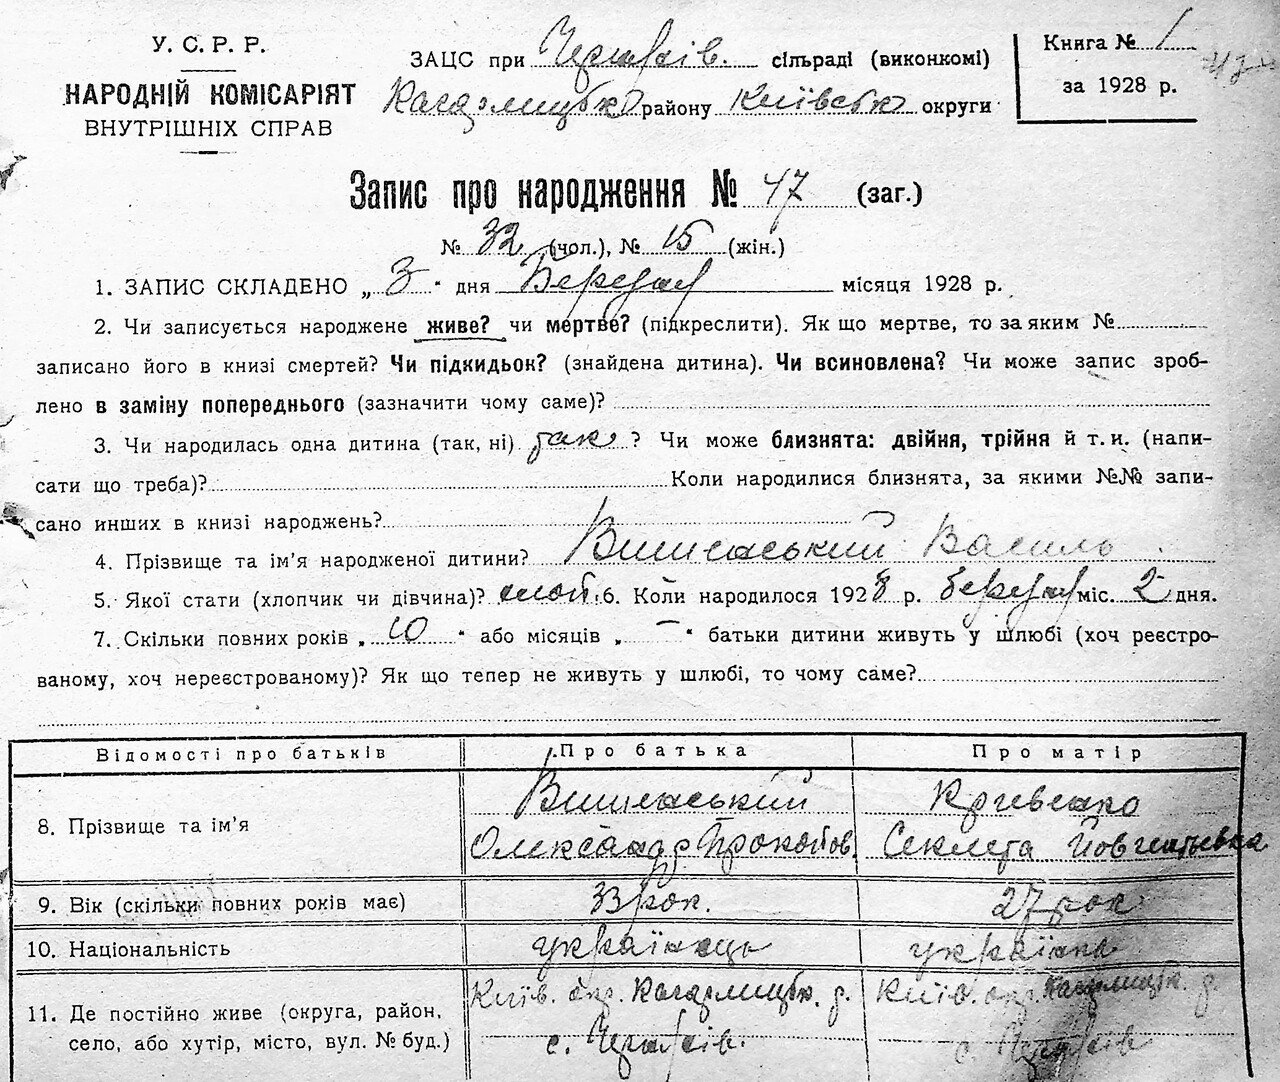 У. С. Р. Р.
НАРОДНІЙ КОМІСАРІЯТ
ВНУТРІШНІХ СПРАВ
ЗАЦС при сільраді (виконкомі)
Кагарлицько району Київсько округи
Книга № 1
за 1928 р.
Запис про народження № 47 (заг.)
№ 32 (чол.), № 15 (жін.)
1. ЗАПИС СКЛАДЕНО „ 3 " дня Березня місяця 1928 р.
2. Чи записується народжене живе? чи мертве? (підкреслити). Як що мертве, то за яким №
записано його в книзі смертей? Чи підкидьок? (знайдена дитина). Чи всиновлена? Чи може запис зроб-
лено в заміну попереднього (зазначити чому саме)?
3. Чи народилась одна дитина (так, ні) так ? Чи може близнята: двійня, трійня й т. и. (напи-
сати що треба)? Коли народилися близнята, за якими №№ запи-
сано инших в книзі народжень?
4. Прізвище та ім'я народженої дитини? Василь
5. Якої стати (хлопчик чи дівчина)? 6. Коли народилося 1928 р. березня міс. 2 дня.
7. Скільки повних років „ 10 " або місяців „ — " батьки дитини живуть у шлюбі (хоч реєстро-
ваному, хоч нереєстрованому)? Як що тепер не живуть у шлюбі, то чому саме?
Відомості про батьків Про батька Про матір
8. Прізвище та ім'я Кривенко
Олександр Прокопов. Секлета
9. Вік (скільки повних років має) 33 рок. 27 рок
10. Національність українець українка
11. Де постійно живе (округа, район, Київ. окр. Кагарлицьк. р. Київ. окр. Кагарлицьк. р.
село, або хутір, місто, вул. № буд.) с. с.